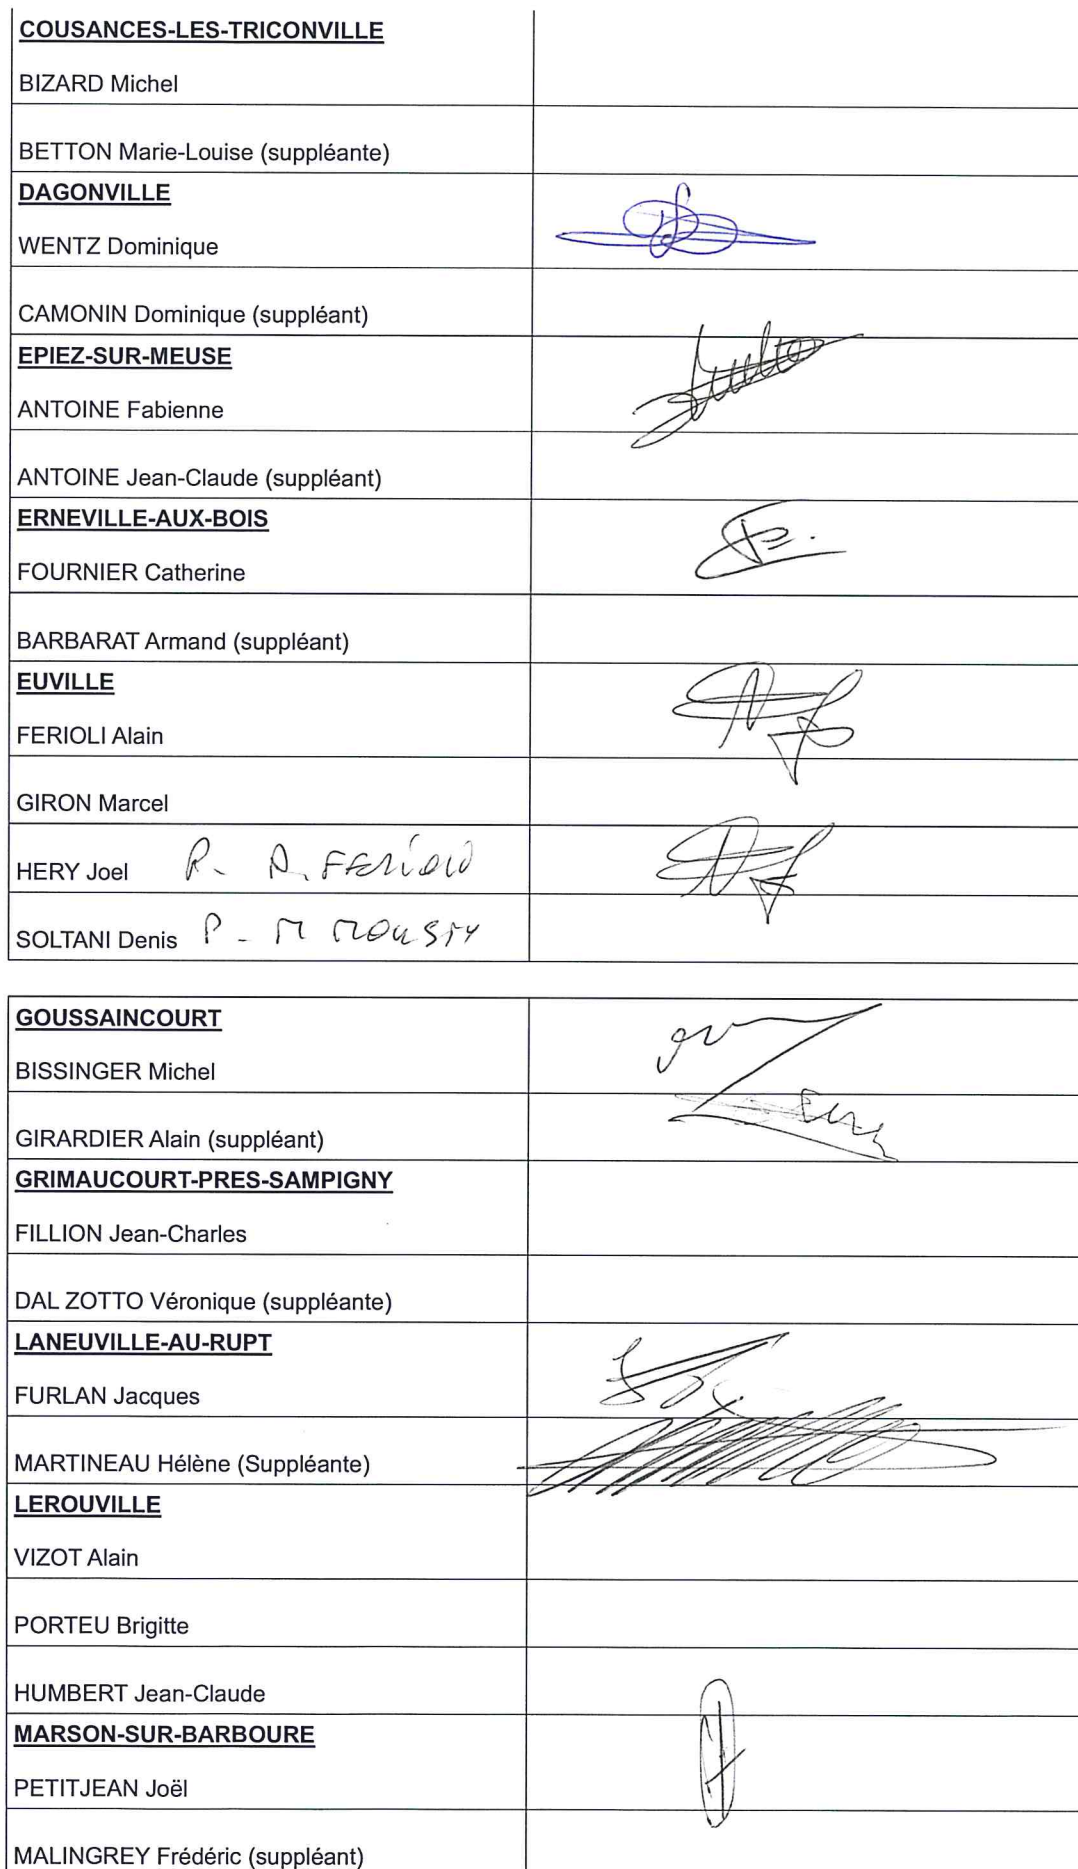 COUSANCES-LES-TRICONVILLE
BIZARD Michel
BETTON Marie-Louise (suppléante)
DAGONVILLE
WENTZ Dominique
CAMONIN Dominique (suppléant)
EPIEZ-SUR-MEUSE
ANTOINE Fabienne
ANTOINE Jean-Claude (suppléant)
ERNEVILLE-AUX-BOIS
FOURNIER Catherine
BARBARAT Armand (suppléant)
EUVILLE
FERIOLI Alain
GIRON Marcel
HERY Joel P. A. FERIOLI
SOLTANI Denis P - M MOUSTY
GOUSSAINCOURT
BISSINGER Michel
GIRARDIER Alain (suppléant)
GRIMAUCOURT-PRES-SAMPIGNY
FILLION Jean-Charles
DAL ZOTTO Véronique (suppléante)
LANEUVILLE-AU-RUPT
FURLAN Jacques
MARTINEAU Hélène (Suppléante)
LEROUVILLE
VIZOT Alain
PORTEU Brigitte
HUMBERT Jean-Claude
MARSON-SUR-BARBOURE
PETITJEAN Joël
MALINGREY Frédéric (suppléant)